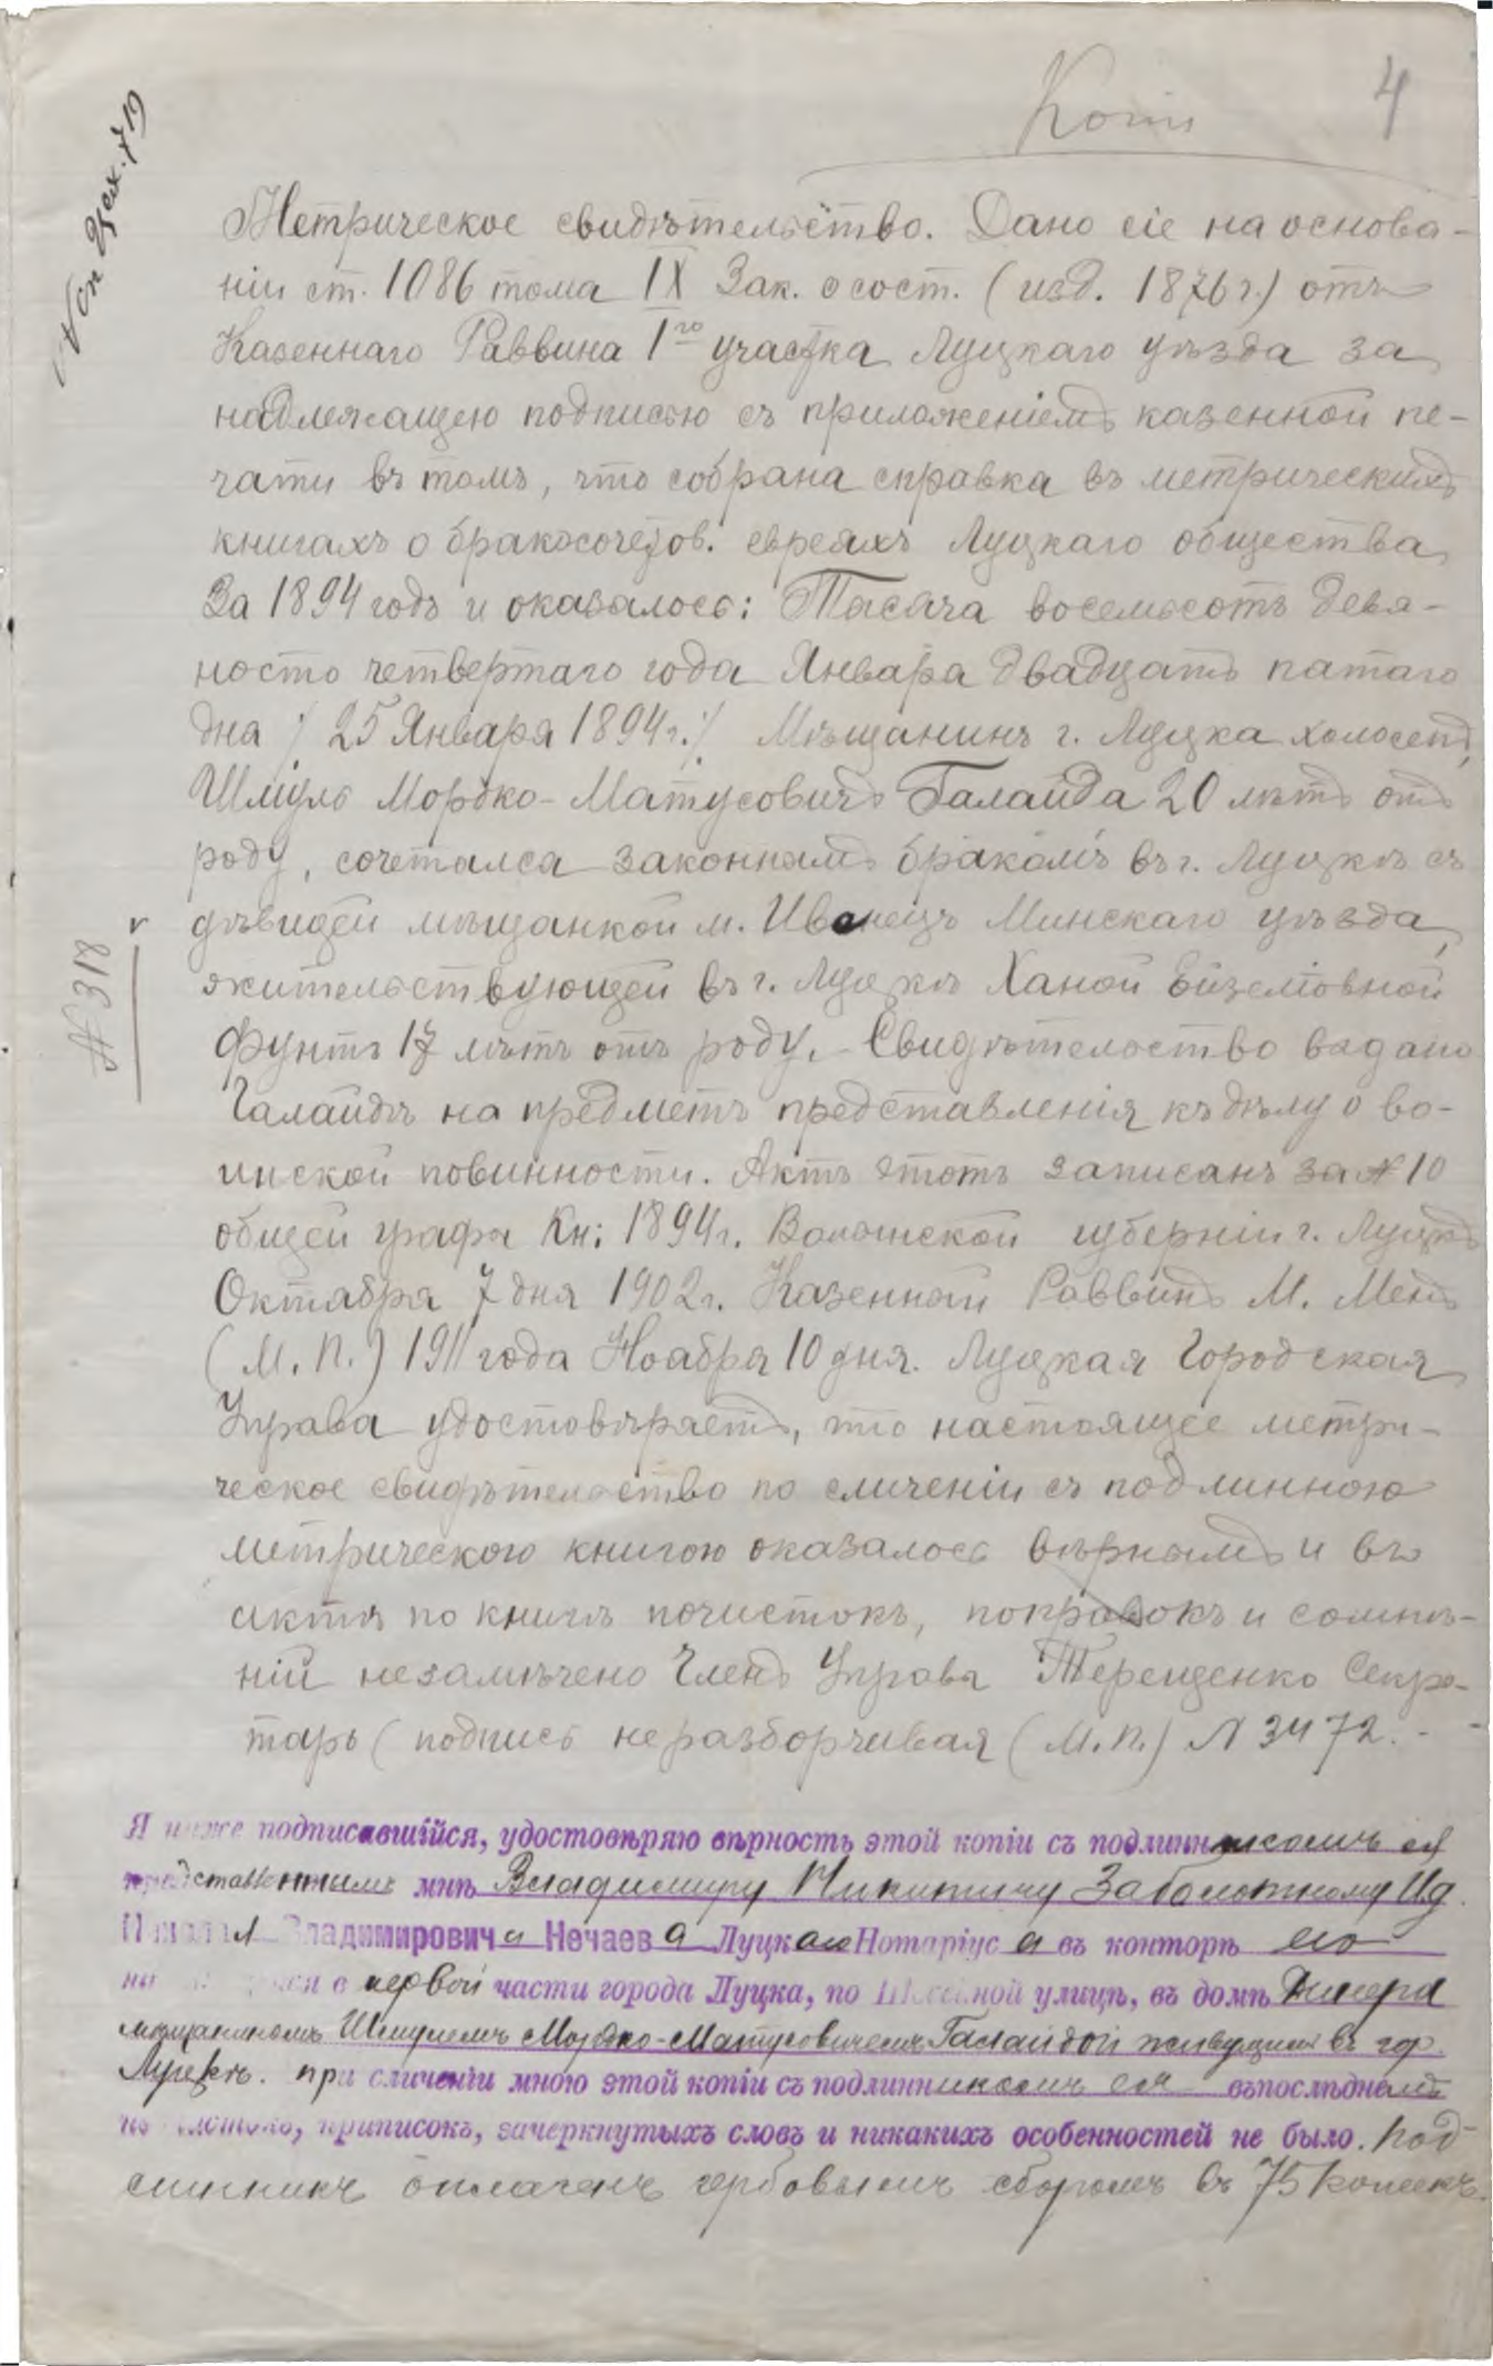 Копія
4
Метрическое свидѣтельство. Дано сіе на основа-
ніи ст. 1086 тома IX Зак. о сост. (изд. 1876 г.) отъ
Казеннаго Раввина 1го участка Луцкаго уѣзда за
надлежащею подписью съ приложеніемъ казенной пе-
чати въ томъ, что собрана справка въ метрическихъ
книгахъ о бракосочетов. евреяхъ Луцкаго общества
За 1894 годъ и оказалось: Тысяча восемьсотъ девя-
носто четвертаго года Января двадцать пятаго
дня /25 Января 1894 г./ Мѣщанинъ г. Луцка холостъ,
Шмуль Мордко-Матусовичъ Галайда 20 лѣтъ отъ
роду, сочетался законнымъ бракомъ въ г. Луцкѣ съ
дѣвицей мѣщанкой м. Ивенецъ Минскаго уѣзда,
жительствующей въ г. Луцкѣ Ханой Айзековной
Фунтъ 17 лѣтъ отъ роду. Свидѣтельство выдано
Галайдѣ на предметъ представленія къ дѣлу о во-
инской повинности. Актъ этотъ записанъ за № 10
общей графы Кн: 1894 г. Волынской губерніи г. Луцкъ
Октября 7 дня 1902 г. Казенный Раввинъ М.
(М. П.) 1911 года Ноября 10 дня. Луцкая Городская
Управа удостовѣряетъ, что настоящее метри-
ческое свидѣтельство по сличеніи съ подлинною
метрическою книгою оказалось вѣрнымъ и въ
актѣ по книгѣ почистокъ, поправокъ и сомнѣ-
ній незамѣчено Членъ Управы Терещенко Секре-
тарь (подпись неразборчивая (М. П.) № 3472.-
№ 318
Я ниже подписавшійся, удостовѣряю вѣрность этой копіи съ подлинникомъ ея
представленнымъ мнѣ Владимиру Никитичу Заболотному И.д.
Владимировича Нечаева Луцкаго Нотаріуса въ конторѣ его
въ первой части города Луцка, по Шоссейной улицѣ, въ домѣ
мѣщаниномъ Шмулемъ Мордко-Матусовичемъ Галайдой живущимъ въ гор.
Луцкѣ. при сличеніи мною этой копіи съ подлинникомъ ея въпослѣднемъ
приписокъ, зачеркнутыхъ словъ и никакихъ особенностей не было. Под-
линникъ оплаченъ гербовымъ сборомъ въ 75 копѣекъ.